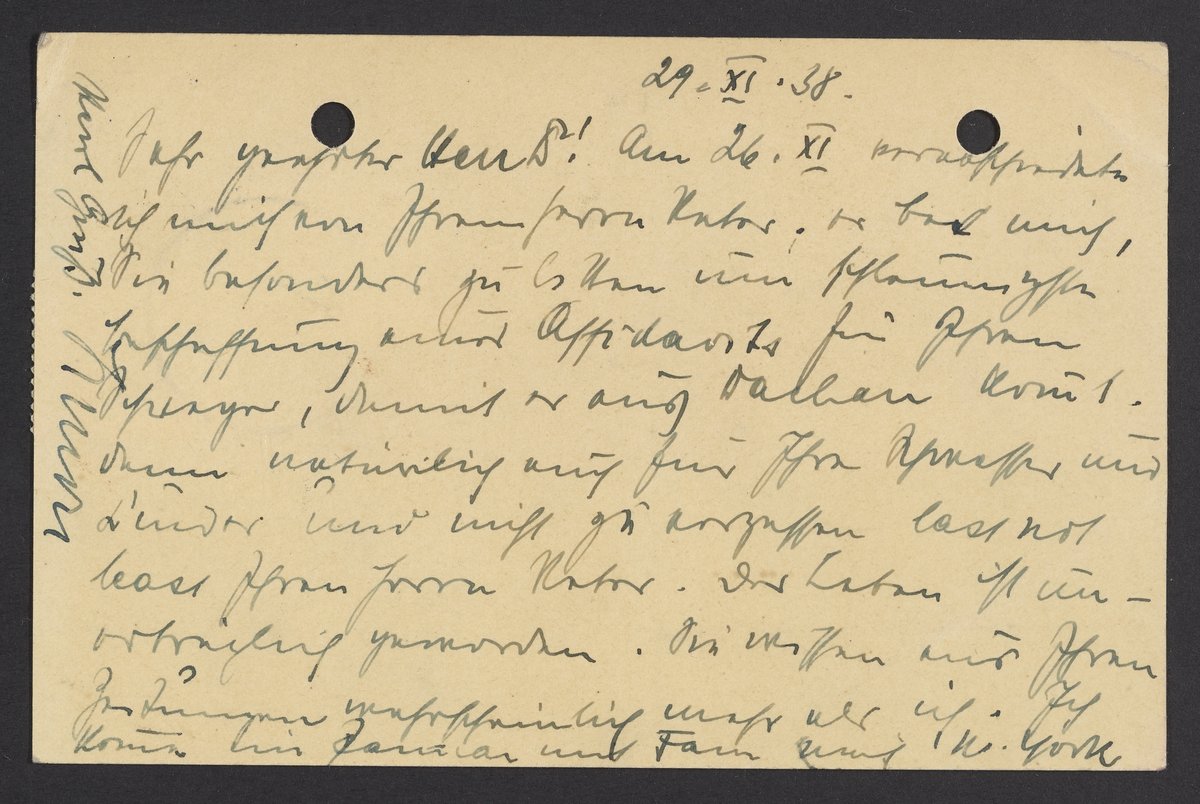 29. XI. 38.
Sehr geehrter Herr B! Am 26. XI verabschiedete
ich mich von Ihrem Herrn Vater. er bat mich,
Sie besonders zu bitten um schleunigste
Beschaffung eines Affidavits für Ihren
Schwager, damit er aus Dachau komt.
dann natürlich auch für Ihre Schwester und
Kinder und nicht zu vergessen last not
least Ihren Herrn Vater. Das Leben ist un-
erträglich geworden. Sie wissen aus Ihren
Zeitungen wahrscheinlich mehr als ich. Ich
kome im Januar mit Fam nach N. York